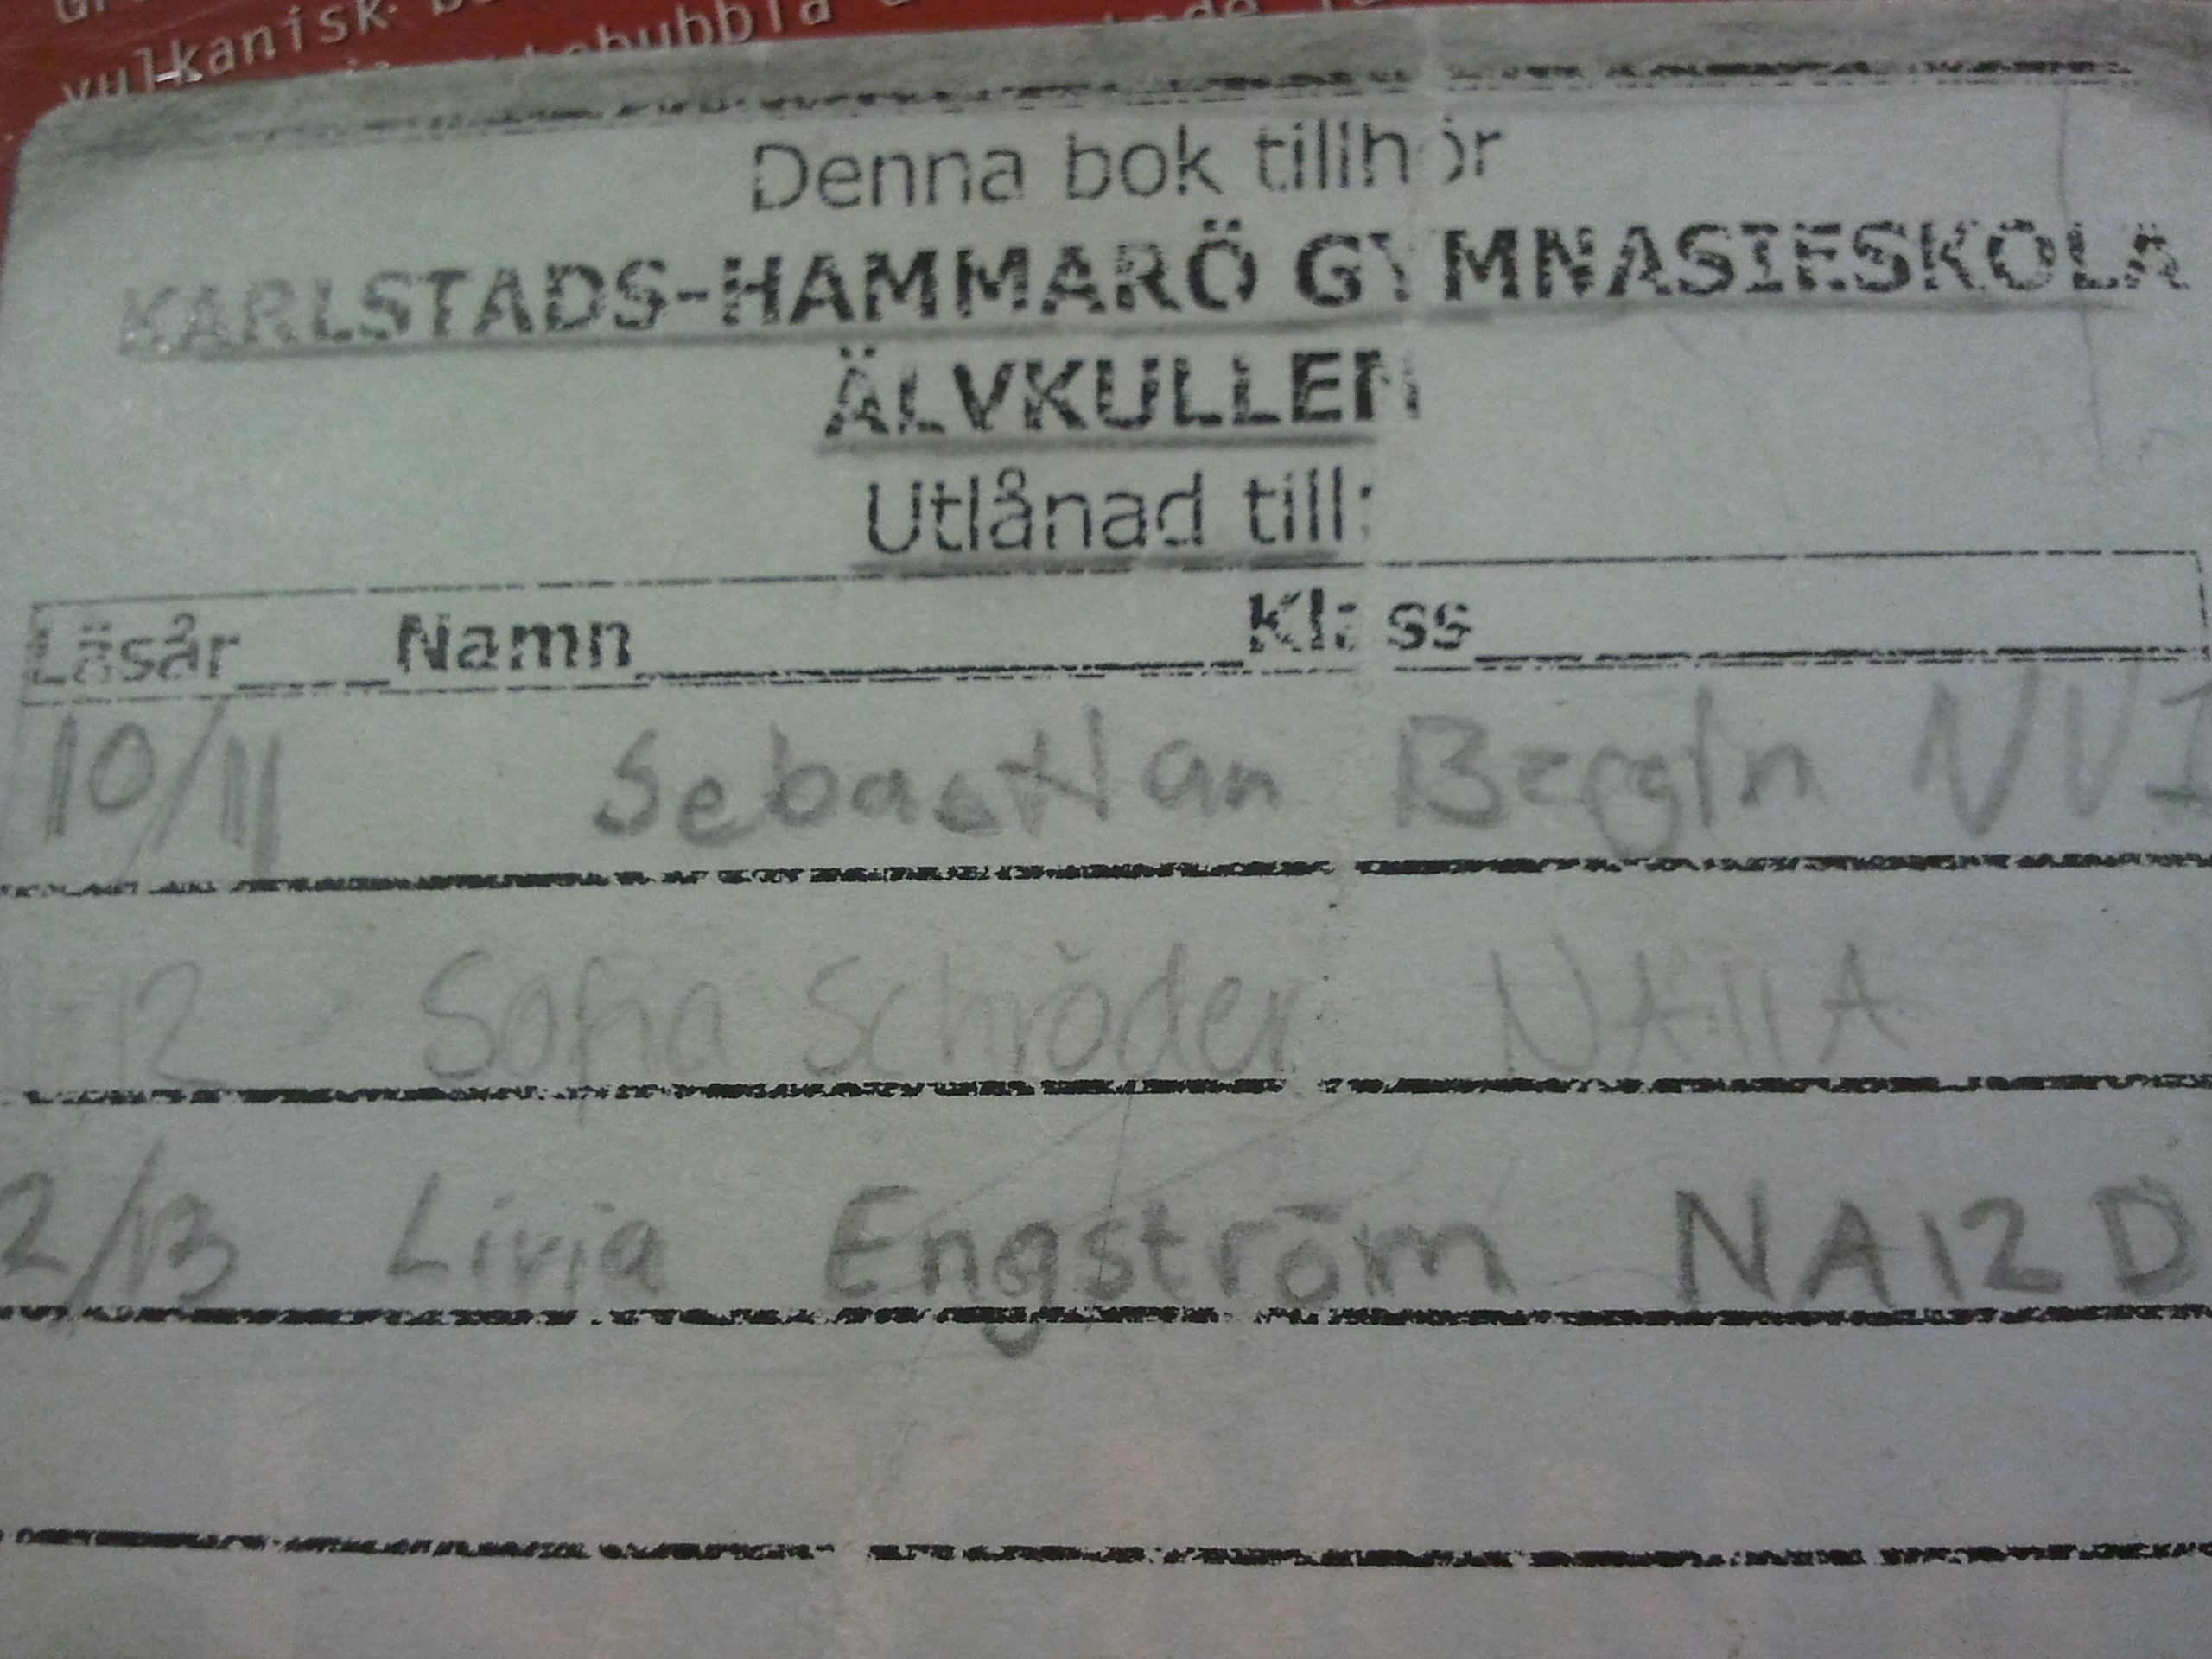 vulkanisk
Denna bok tillhör
KARLSTADS-HAMMARÖ GYMNASIESKOLA
ÄLVKULLEN
Utlånad till:
Läsår____Namn____________Klass____________
10/11 Sebastian Bergin NV1
-12 Sofia Schröder NA11A
2/13 Livia Engström NA12D